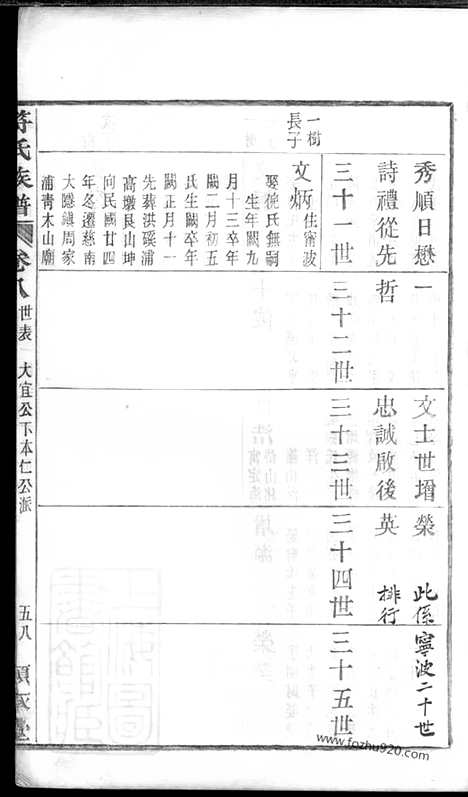 秀順日懋一　文士世增榮　此係寧波二十世
詩禮從先哲　忠誠啟後英　排行
三十一世　三十二世　三十三世　三十四世　三十五世
一樹
長子
文炳住甯波
娶徐氏無嗣
生年闕九
月十三卒年
闕二月初五
氏生闕卒年
闕正月十一
先葬洪磎浦
高墩艮山坤
向民國廿四
年冬遷慈南
大隱鎮周家
浦青木山廟
氏族譜　卷八　世表　大宜公下本仁公派　五八
www.fozhu920.com